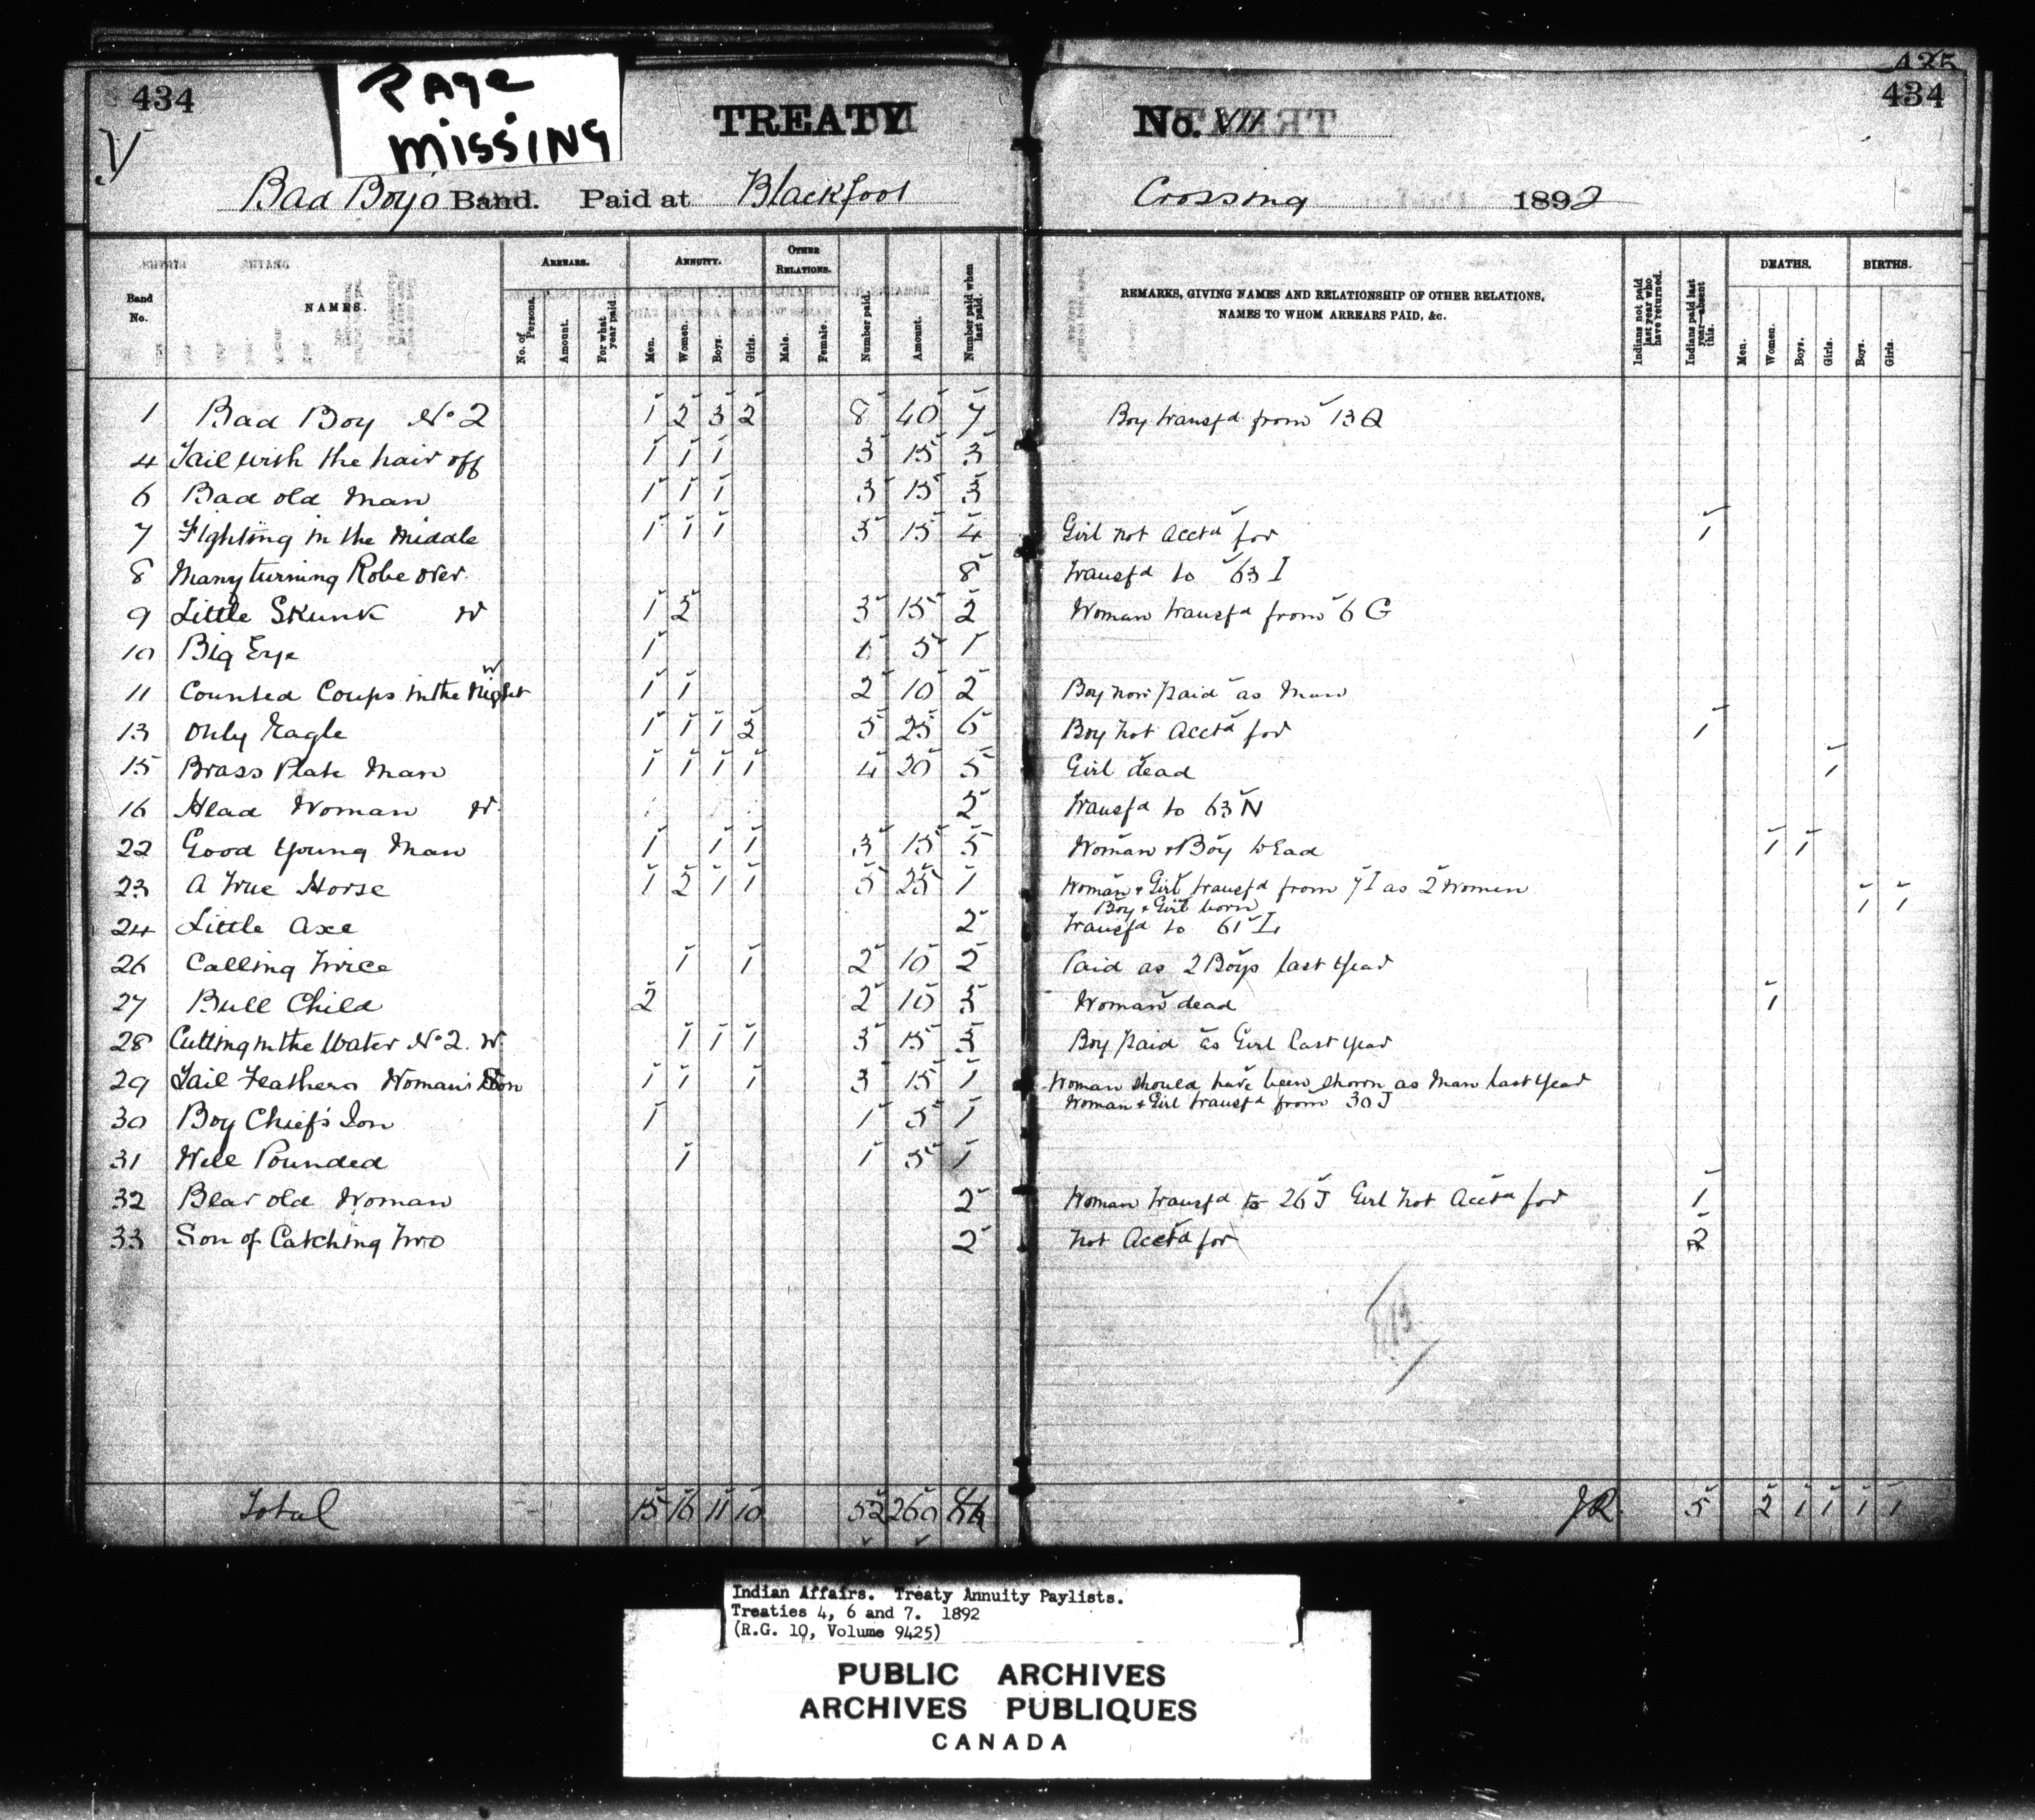 PAGE MISSING
434
TREATY No. VII
435
434
V
Bad Boy's Band. Paid at Blackfoot Crossing 1892
Band No. NAMES. ARREARS. No. of Persons. Amount. For what year paid. ANNUITY. Men. Women. Boys. Girls. OTHER RELATIONS. Male. Female. Number paid. Amount. Number paid when last paid. REMARKS, GIVING NAMES AND RELATIONSHIP OF OTHER RELATIONS, NAMES TO WHOM ARREARS PAID, &c. Indians not paid last year who have returned. Indians paid last year—absent this. DEATHS. Men. Women. Boys. Girls. BIRTHS. Boys. Girls.
1 Bad Boy No 2 1 2 3 2 8 40 7 Boy transfd from 13 Q
4 Tail with the hair off 1 1 1 3 15 3
6 Bad old Man 1 1 1 3 15 3
7 Fighting in the Middle 1 1 1 3 15 4 Girl not Acctd for 1
8 Many turning Robe over 8 transfd to 63 I
9 Little Skunk W 1 2 3 15 2 Woman transfd from 6 G
10 Big Eye 1 1 5 1
11 Counted Coups in the Night W 1 1 2 10 2 Boy now paid as Man
13 Only Eagle 1 1 1 2 5 25 6 Boy not Acctd for 1
15 Brass Plate Man 1 1 1 1 4 20 5 Girl dead 1
16 Head Woman W. 2 transfd to 63 N
22 Good Young Man 1 1 1 3 15 5 Woman & Boy dead 1 1
23 A True Horse 1 2 1 1 5 25 1 Woman & Girl transfd from 7 I as 2 Women
Boy & Girl born 1 1
24 Little Axe 2 transfd to 61 I
26 Calling Twice 1 1 2 10 2 Paid as 2 Boys last year
27 Bull Child 2 2 10 3 Woman dead 1
28 Cutting in the Water No 2. W. 1 1 1 3 15 3 Boy paid as Girl last year
29 Tail Feathers Woman's Son 1 1 1 3 15 1 Woman should have been shown as Man last year
Woman & Girl transfd from 30 J
30 Boy Chief's Son 1 1 5 1
31 Well Pounded 1 1 5 1
32 Bear old Woman 2 Woman transfd to 26 J Girl not Acctd for 1
33 Son of Catching Two 2 not Acctd for 2
Total 15 16 11 10 52 260 JR. 5 2 1 1 1 1
Indian Affairs. Treaty Annuity Paylists.
Treaties 4, 6 and 7. 1892
(R.G. 10, Volume 9425)
PUBLIC ARCHIVES
ARCHIVES PUBLIQUES
CANADA